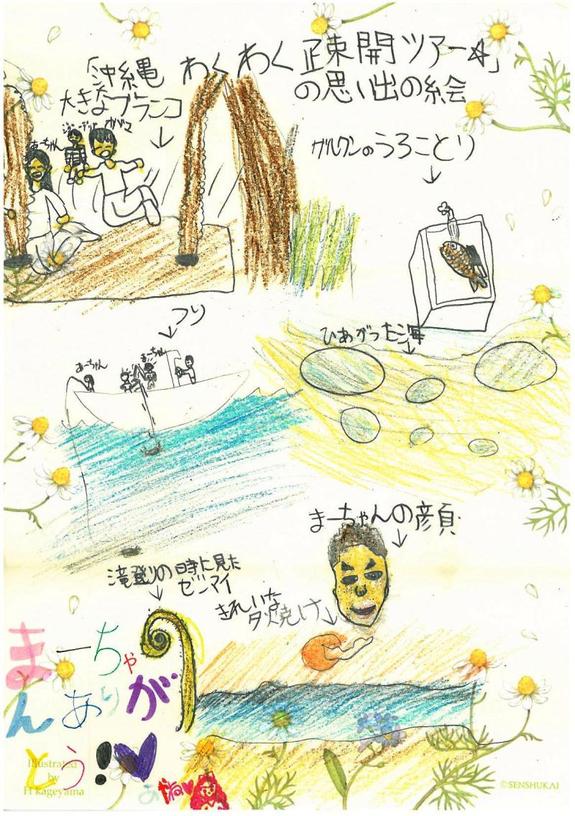 「沖縄 わくわく 疎開ツアー☆」
の思い出の絵
大きなブランコ
グルクンのうろことり
つり
ひあがった海
あーちゃん
まーちゃん
まーちゃんの顔
滝登りの時に見た
ゼンマイ
きれいな
夕焼け
まーちゃ
んありが
とう!!
あやね
Illustrated
by
H kageyama
©SENSHUKAI